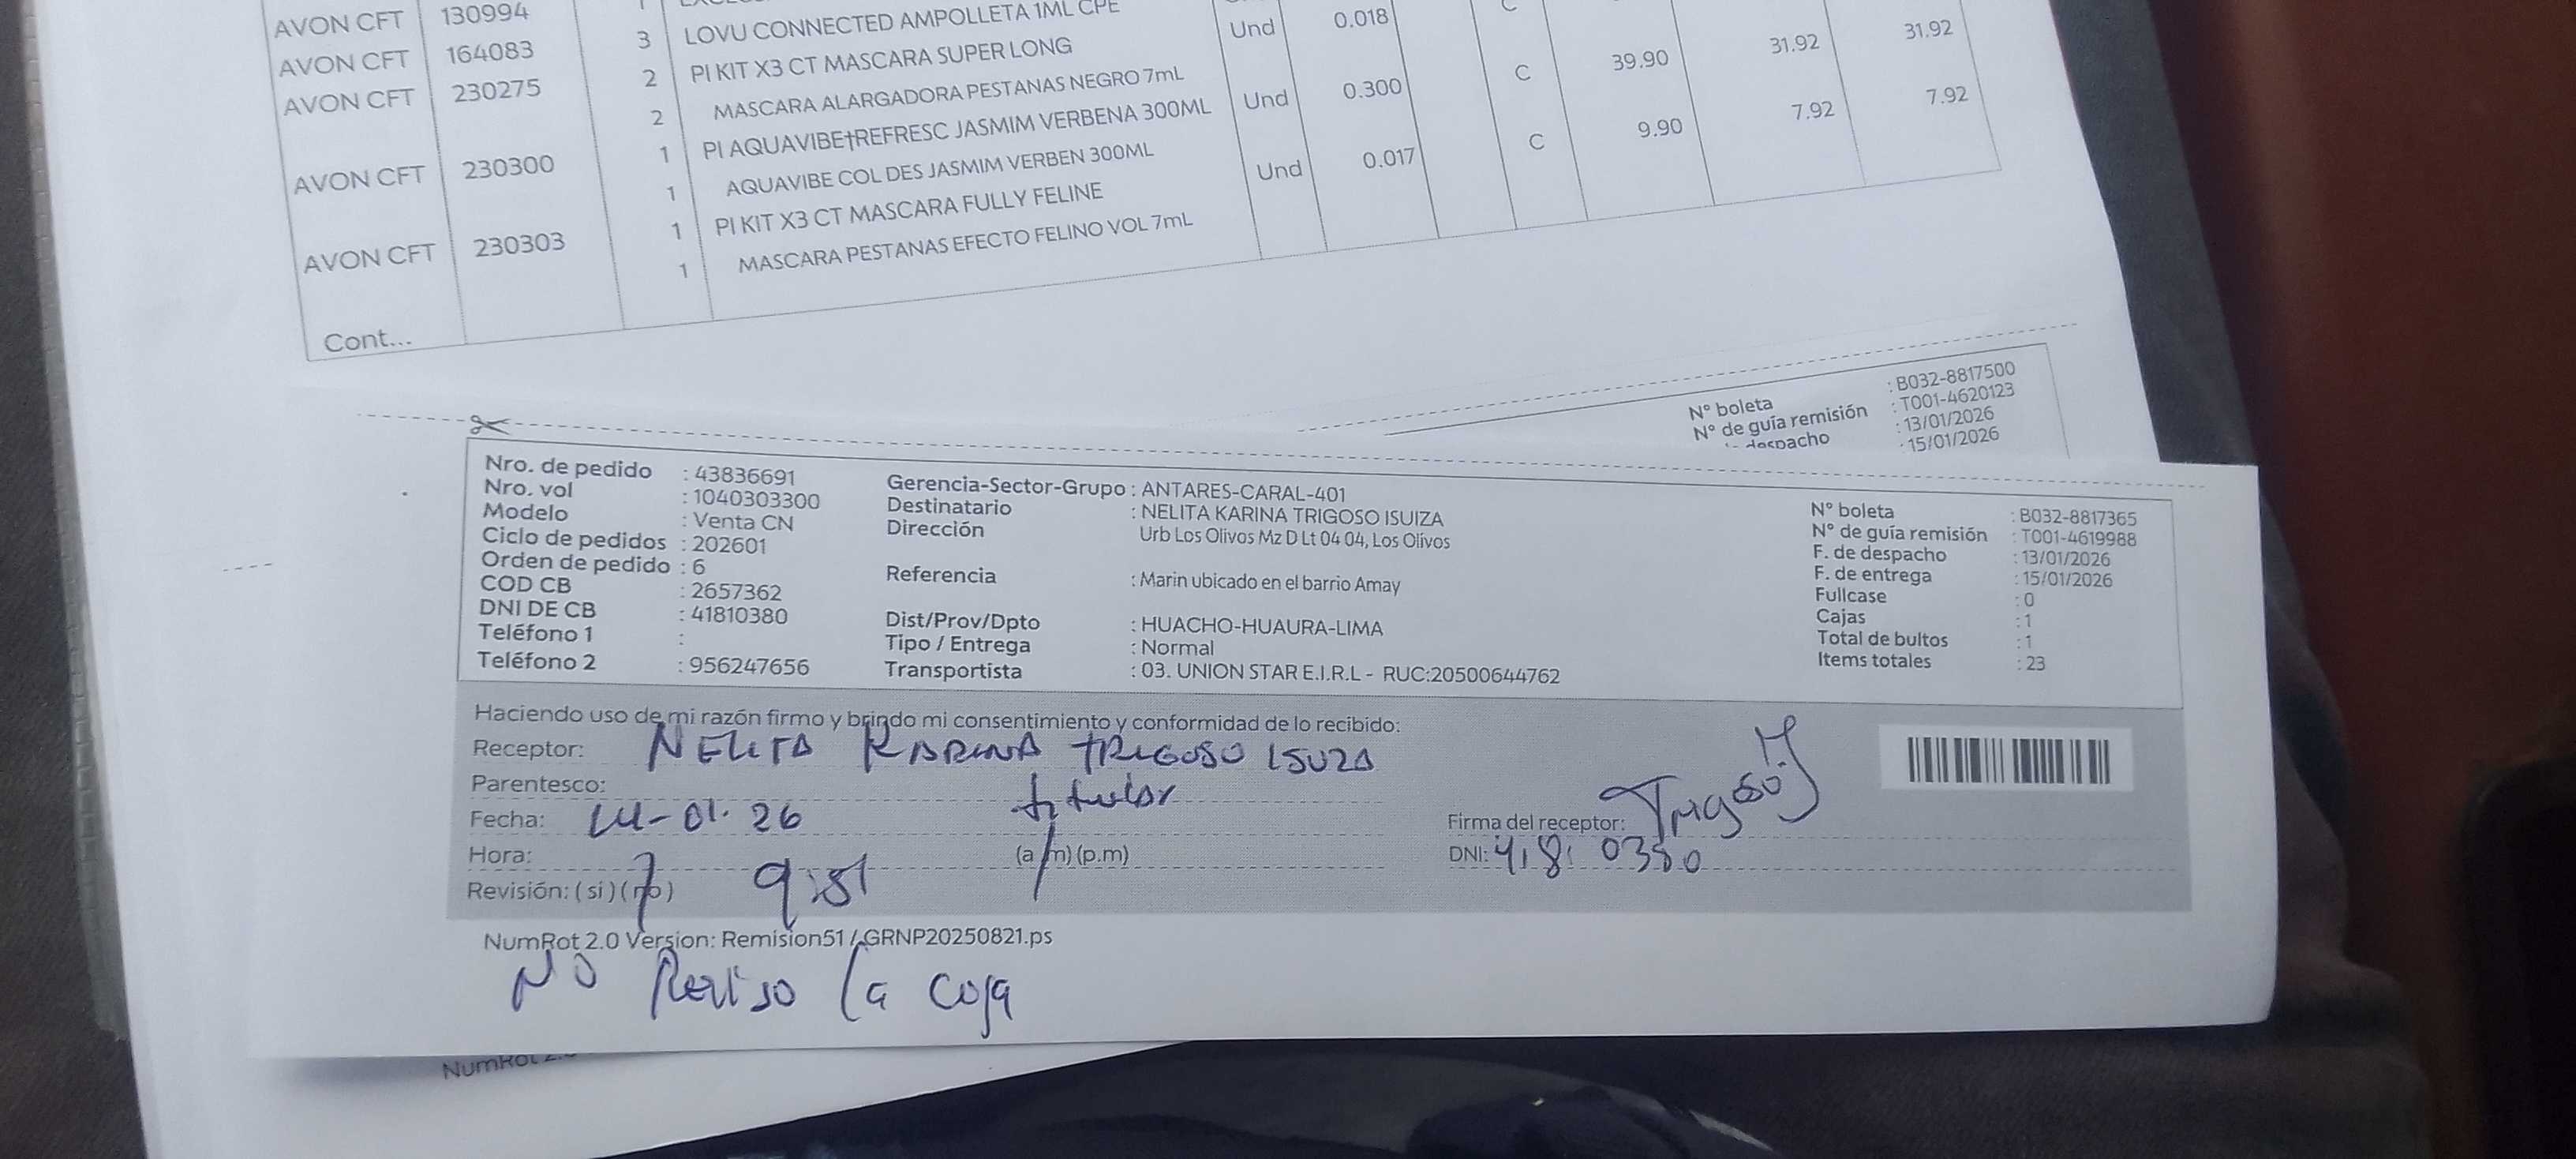 AVON CFT 130994
AVON CFT 164083 3 LOVU CONNECTED AMPOLLETA 1ML CPE Und 0.018 C
AVON CFT 230275 2 PI KIT X3 CT MASCARA SUPER LONG
2 MASCARA ALARGADORA PESTANAS NEGRO 7mL
AVON CFT 230300 1 PI AQUAVIBE†REFRESC JASMIM VERBENA 300ML Und 0.300 C 39.90 31.92 31.92
1 AQUAVIBE COL DES JASMIM VERBEN 300ML
AVON CFT 230303 1 PI KIT X3 CT MASCARA FULLY FELINE Und 0.017 C 9.90 7.92 7.92
1 MASCARA PESTANAS EFECTO FELINO VOL 7mL
Cont...
N° boleta : B032-8817500
N° de guía remisión : T001-4620123
despacho : 13/01/2026
: 15/01/2026
Nro. de pedido : 43836691
Nro. vol : 1040303300
Modelo : Venta CN
Ciclo de pedidos : 202601
Orden de pedido : 6
COD CB : 2657362
DNI DE CB : 41810380
Teléfono 1 :
Teléfono 2 : 956247656
Gerencia-Sector-Grupo : ANTARES-CARAL-401
Destinatario : NELITA KARINA TRIGOSO ISUIZA
Dirección Urb Los Olivos Mz D Lt 04 04, Los Olivos
Referencia : Marin ubicado en el barrio Amay
Dist/Prov/Dpto : HUACHO-HUAURA-LIMA
Tipo / Entrega : Normal
Transportista : 03. UNION STAR E.I.R.L - RUC:20500644762
N° boleta : B032-8817365
N° de guía remisión : T001-4619988
F. de despacho : 13/01/2026
F. de entrega : 15/01/2026
Fullcase : 0
Cajas : 1
Total de bultos : 1
Items totales : 23
Haciendo uso de mi razón firmo y brindo mi consentimiento y conformidad de lo recibido:
Receptor: NELITA KARINA TRIGOSO ISUZA
Parentesco: titular
Fecha: 14-01-26
Hora: 9:51 (a.m) (p.m)
Revisión: ( si ) ( no )
Firma del receptor: Trigoso
DNI: 41810380
NumRot 2.0 Version: Remision51 / GRNP20250821.ps
NO Reviso la caja
NumRot 2.0